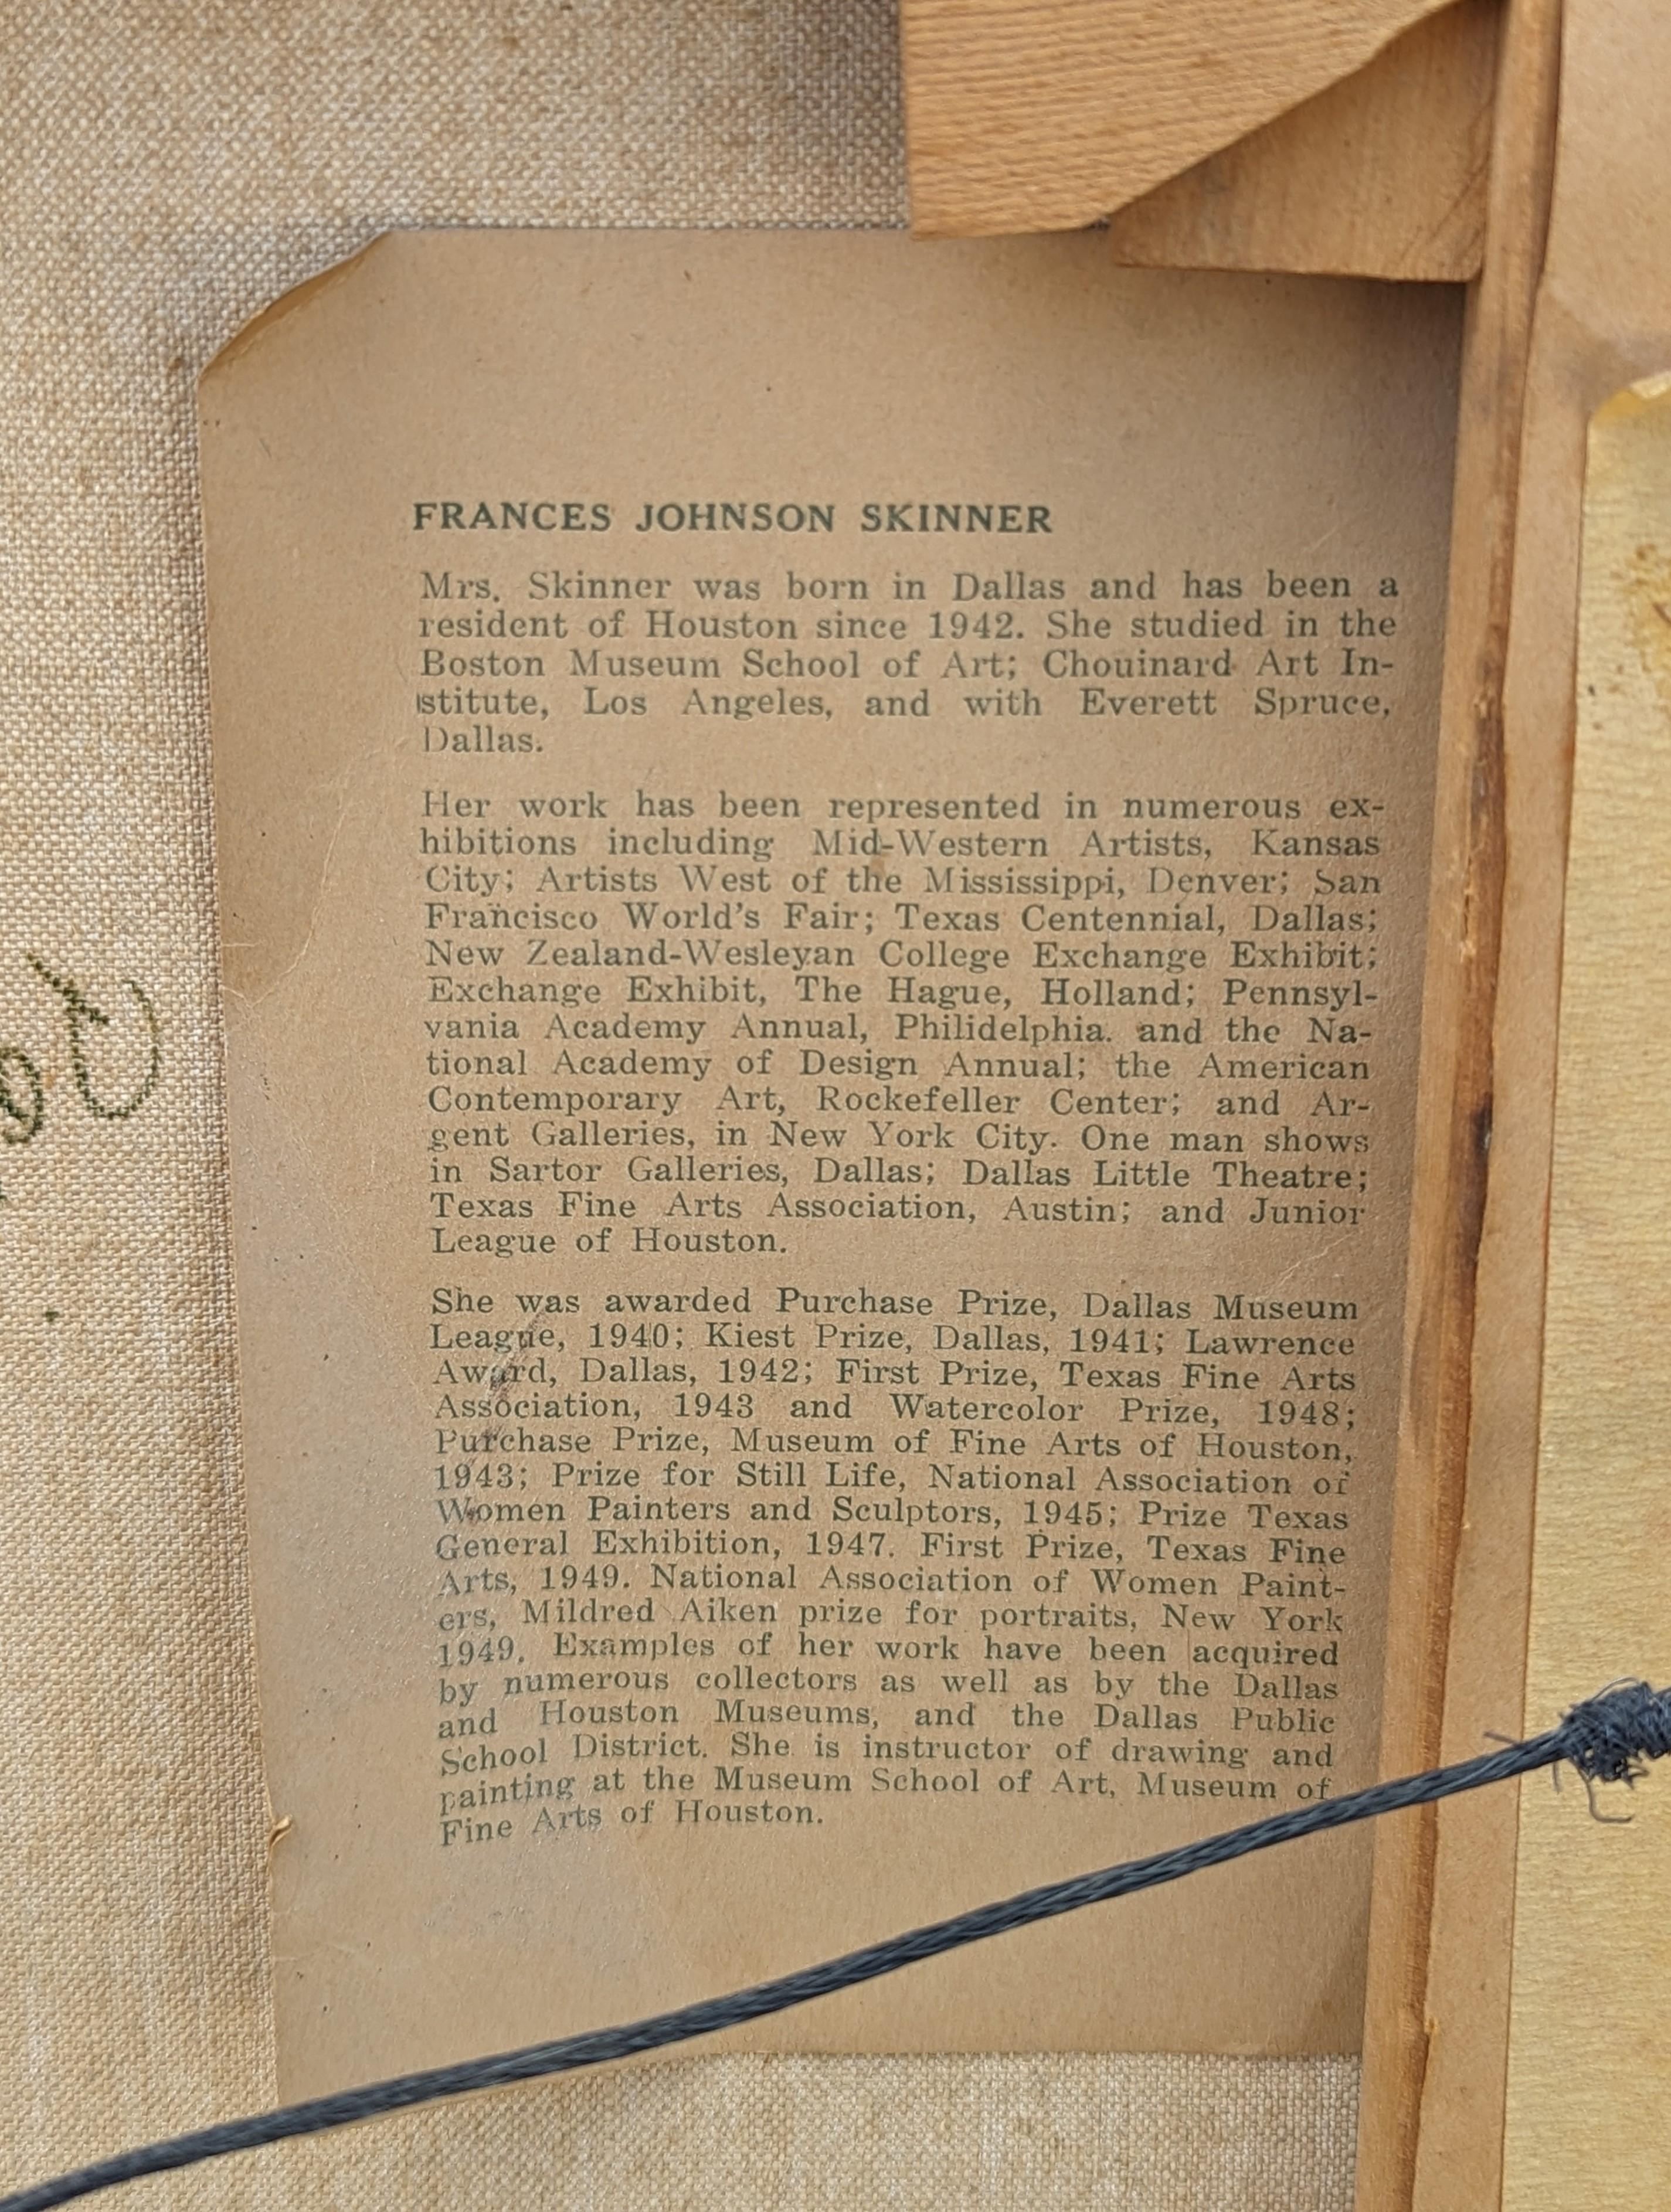 FRANCES JOHNSON SKINNER
Mrs. Skinner was born in Dallas and has been a
resident of Houston since 1942. She studied in the
Boston Museum School of Art; Chouinard Art In-
stitute, Los Angeles, and with Everett Spruce,
Dallas.
Her work has been represented in numerous ex-
hibitions including Mid-Western Artists, Kansas
City; Artists West of the Mississippi, Denver; San
Francisco World's Fair; Texas Centennial, Dallas;
New Zealand-Wesleyan College Exchange Exhibit;
Exchange Exhibit, The Hague, Holland; Pennsyl-
vania Academy Annual, Philidelphia. and the Na-
tional Academy of Design Annual; the American
Contemporary Art, Rockefeller Center; and Ar-
gent Galleries, in New York City. One man shows
in Sartor Galleries, Dallas; Dallas Little Theatre;
Texas Fine Arts Association, Austin; and Junior
League of Houston.
She was awarded Purchase Prize, Dallas Museum
League, 1940; Kiest Prize, Dallas, 1941; Lawrence
Award, Dallas, 1942; First Prize, Texas Fine Arts
Association, 1943 and Watercolor Prize, 1948;
Purchase Prize, Museum of Fine Arts of Houston,
1943; Prize for Still Life, National Association of
Women Painters and Sculptors, 1945; Prize Texas
General Exhibition, 1947. First Prize, Texas Fine
Arts, 1949. National Association of Women Paint-
ers, Mildred Aiken prize for portraits, New York
1949. Examples of her work have been acquired
by numerous collectors as well as by the Dallas
and Houston Museums, and the Dallas Public
School District. She is instructor of drawing and
painting at the Museum School of Art, Museum of
Fine Arts of Houston.